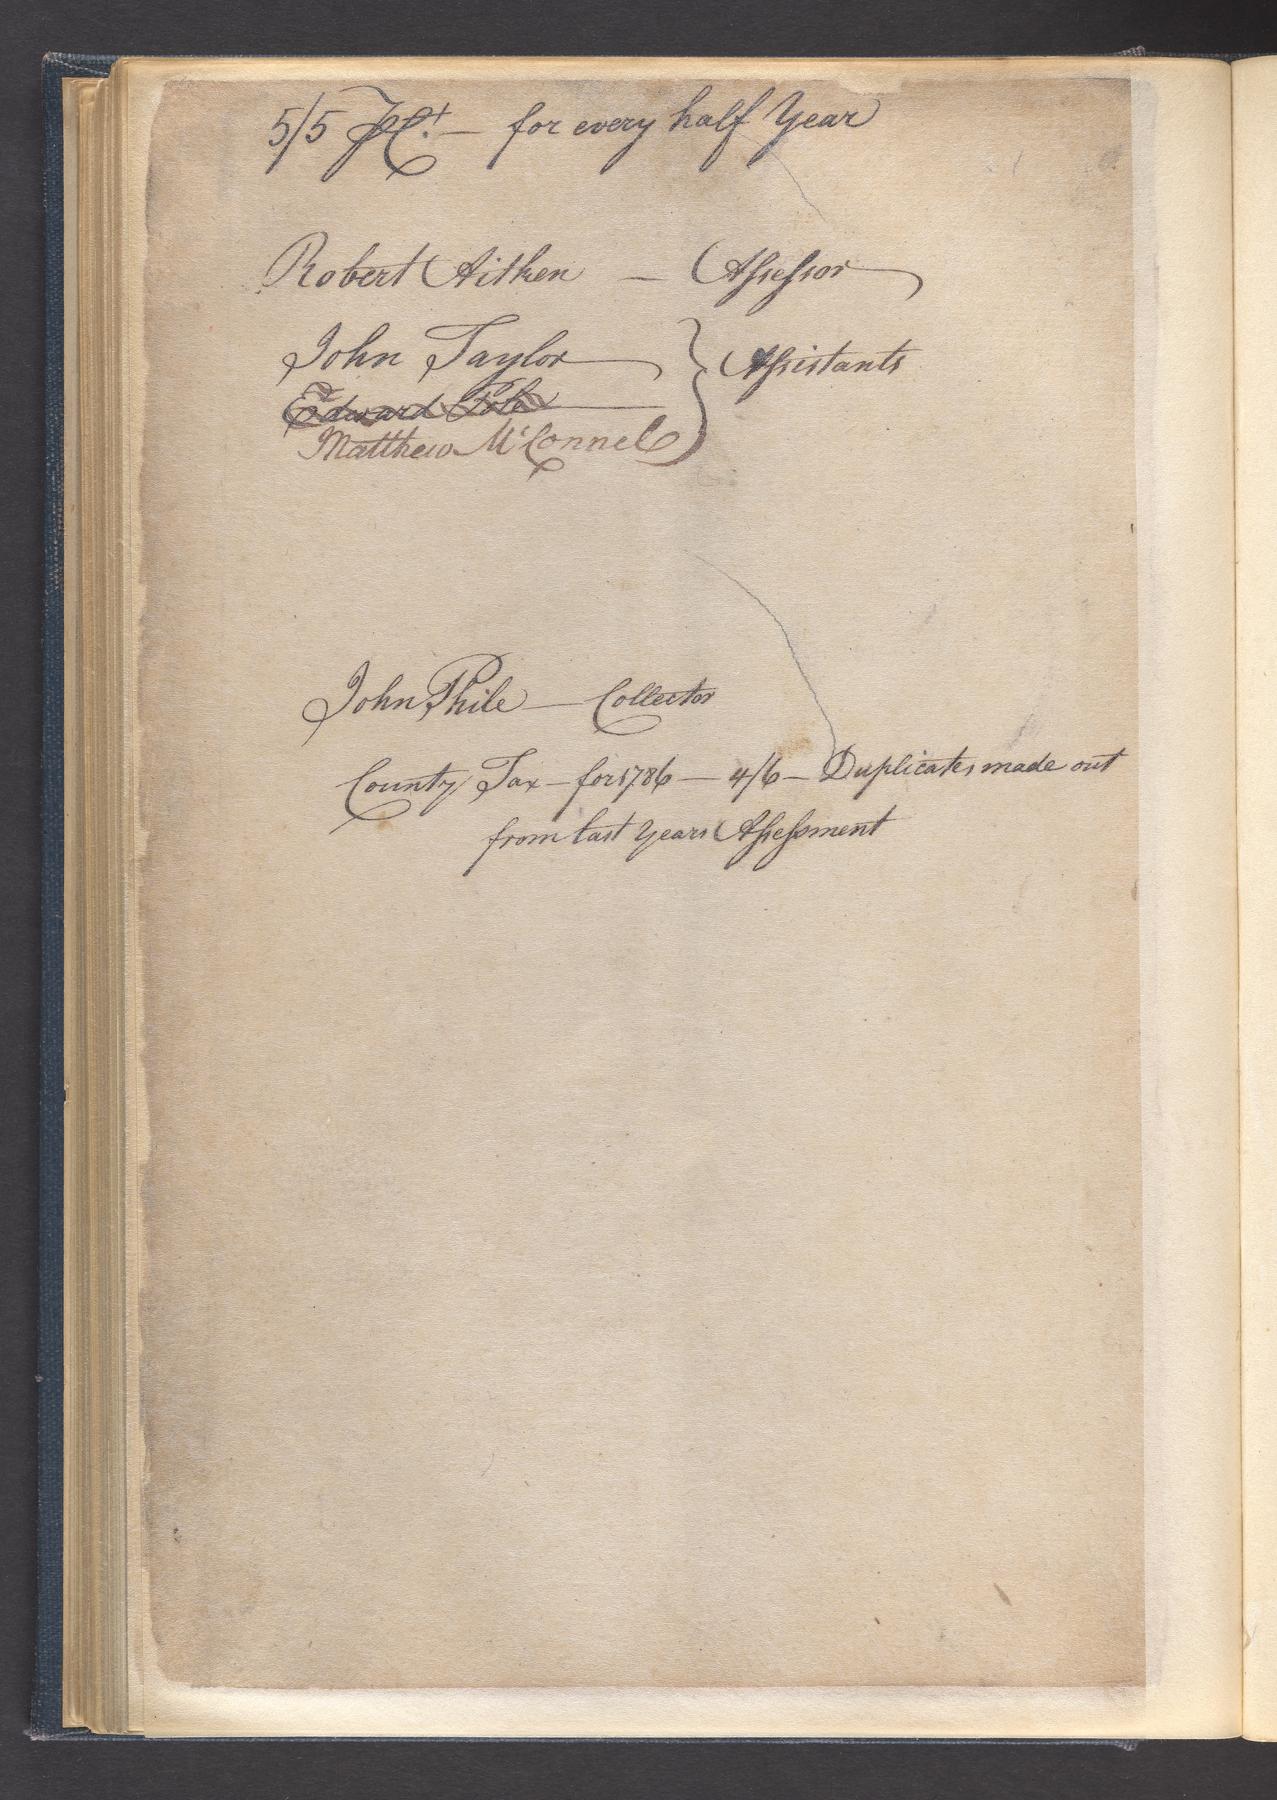 5/5 ⅌ Ct. — for every half Year
Robert Aitken — Assessor
John Taylor
Assistants
Edward Pole
Matthew McConnel
John Phile — Collector
County Tax — for 1786 — 4/6 — Duplicates made out
from last Years Assessment